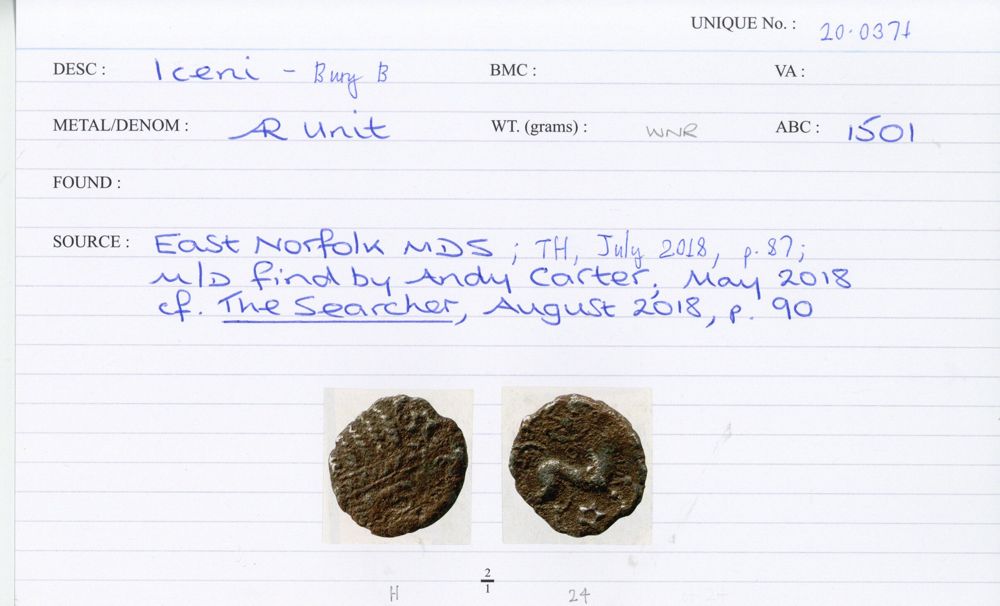 UNIQUE No. : 20.0371
DESC : Iceni - Bury B BMC : VA :
METAL/DENOM : AR Unit WT. (grams) : WNR ABC : 1501
FOUND :
SOURCE : East Norfolk MDS ; TH, July 2018, p. 87;
M/D find by Andy Carter, May 2018
cf. The Searcher, August 2018, p. 90
2
1
H 24